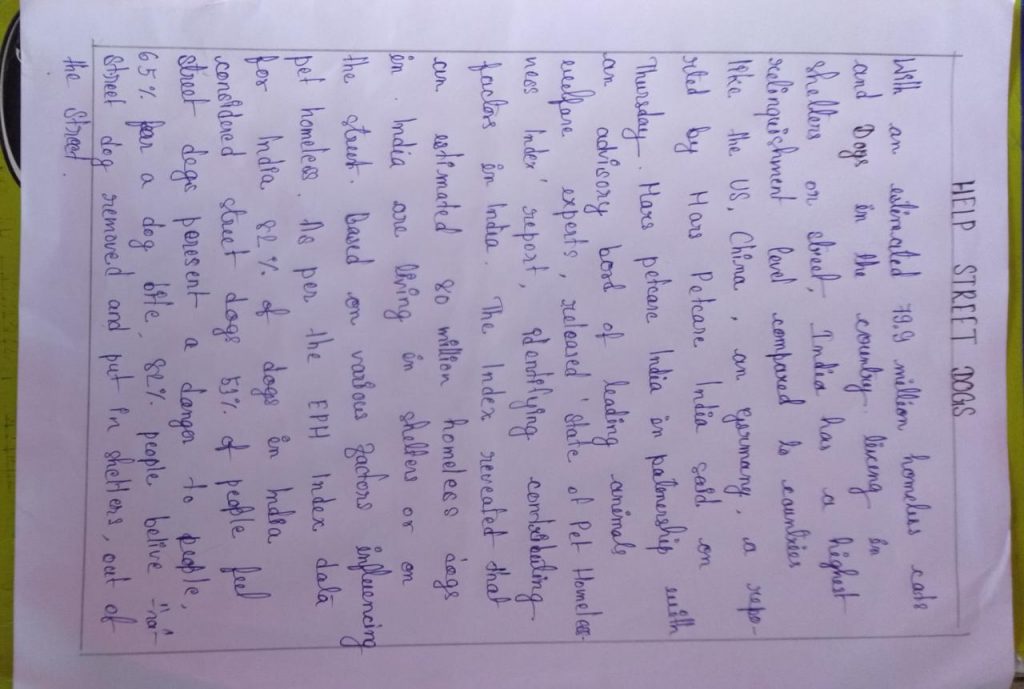 HELP STREET DOGS
With an estimated 79.9 million homeless cats
and Dogs in the country living in
shelters or street, India has a highest
relinquishment level compared to countries
like the US, China, an Germany, a repo-
rted by Mars Petcare India said on
Thursday. Mars petcare India in patnership with
an advisory bord of leading animals
welfare experts, released 'state of Pet Homeless-
ness Index' report, identifying contributing
factors in India. The Index revealed that
an estimated 80 million homeless dogs
in India are living in shelters or on
the street. Based on various factors influencing
pet homeless. As per the EPH Index data
for India 82% of dogs in India
considered street dogs 53% of people feel
street dogs peresent a danger to people,
65% fear a dog bite, 82% people belive
street dog removed and put in shelters, out of
the Street.